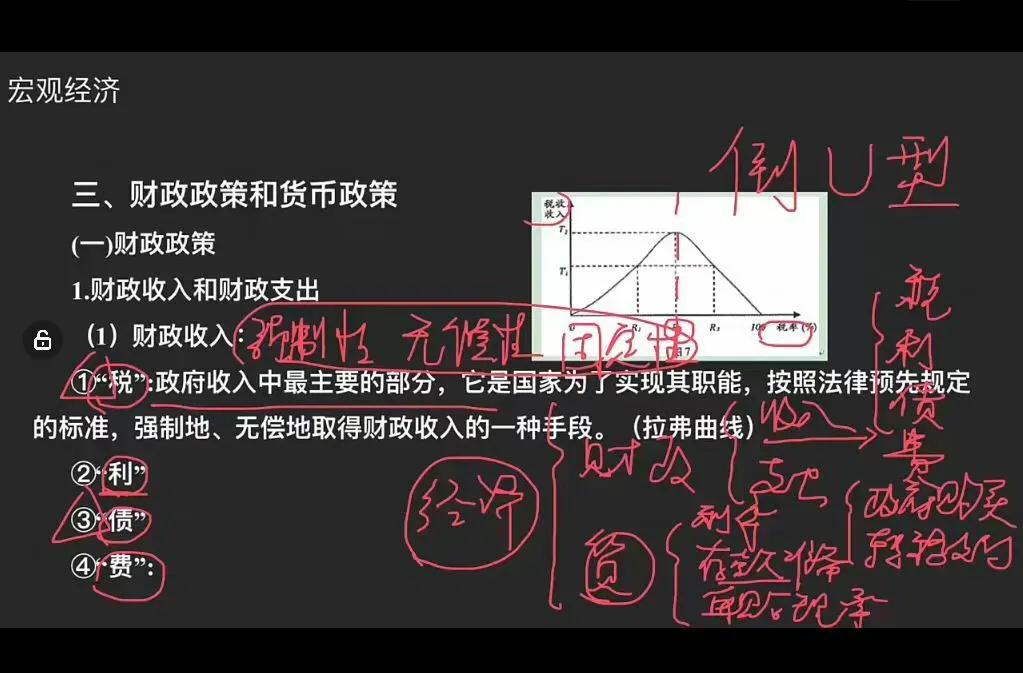 宏观经济
倒U型
三、财政政策和货币政策
(一)财政政策
1.财政收入和财政支出
（1）财政收入：
强制性 无偿性 固定性
税收
收入
T₂
T₁
0 R₁ R₃ 100 税率(%)
①“税”:政府收入中最主要的部分，它是国家为了实现其职能，按照法律预先规定
的标准，强制地、无偿地取得财政收入的一种手段。（拉弗曲线）
②“利”
③“债”
④“费”:
经济
财政
收入
税
利
债
费
支出
政府购买
转移支付
货
利率
存款准备
再贴现率